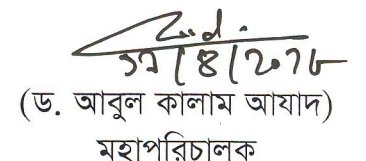 ১৭/৪/২০১৮
(ড. আবুল কালাম আযাদ)
মহাপরিচালক